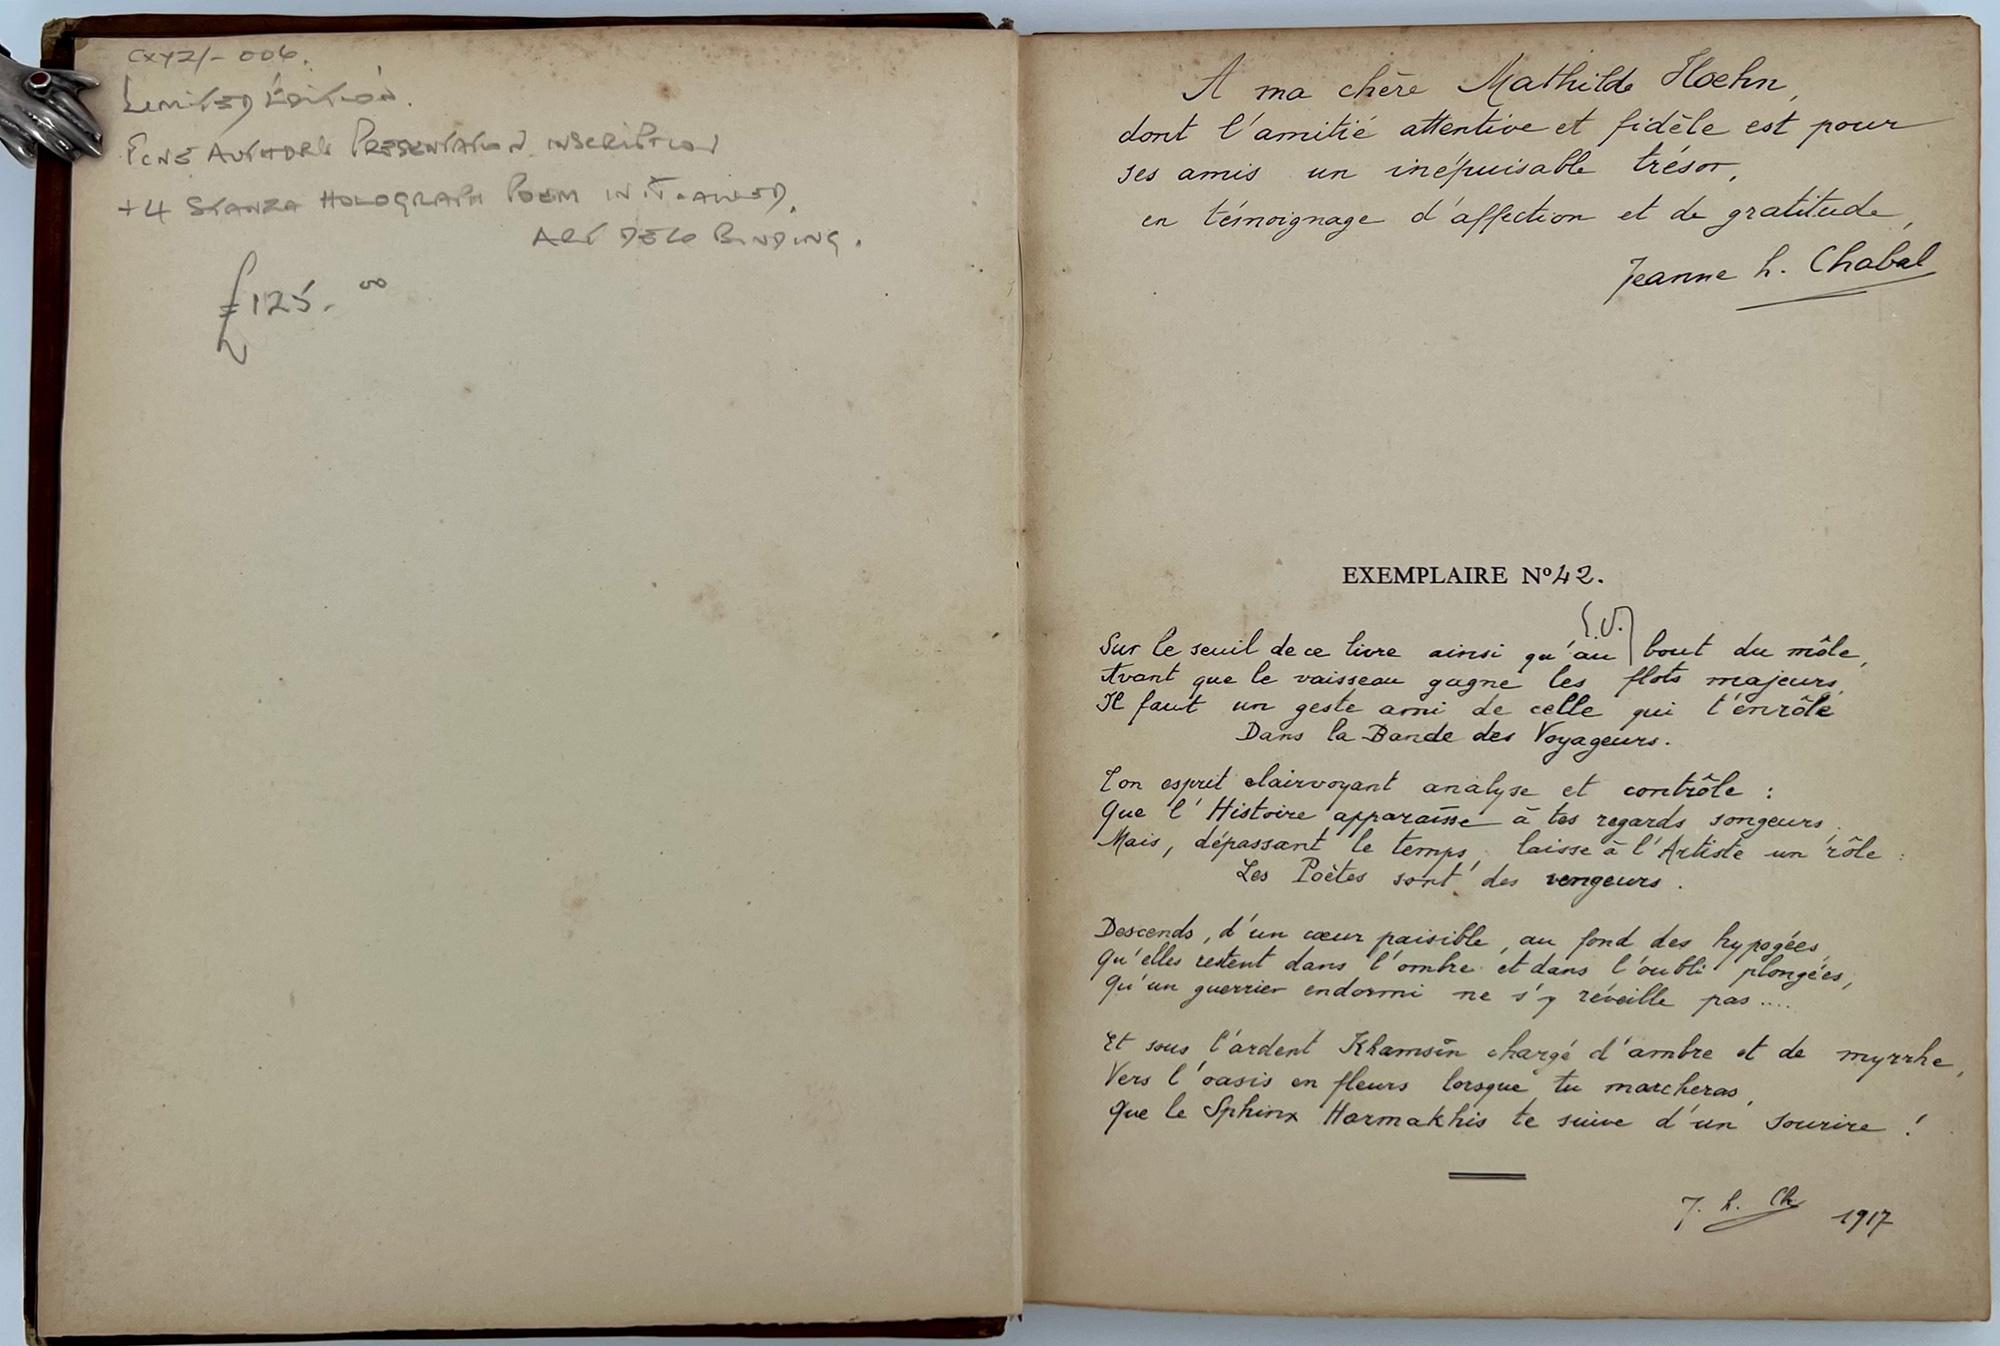 CXYZ/- 006.
LIMITED EDITION.
FINE AUTHORS PRESENTATION INSCRIPTION
+4 STANZA HOLOGRAPH POEM INITIALLED.
ART DECO BINDING.
£125.00
A ma chère Mathilde Hoehn,
dont l'amitié attentive et fidèle est pour
ses amis un inépuisable trésor,
en témoignage d'affection et de gratitude,
Jeanne h. Chabal
EXEMPLAIRE Nº 42.
Sur le seuil de ce livre ainsi qu'au bout du môle,
Avant que le vaisseau gagne les flots majeurs,
Il faut un geste ami de celle qui t'enrôle
Dans la Bande des Voyageurs.
Ton esprit clairvoyant analyse et contrôle :
Que l'Histoire apparaisse à tes regards songeurs,
Mais, dépassant le temps, laisse à l'Artiste un rôle :
Les Poètes sont des vengeurs.
Descends, d'un cœur paisible, au fond des hypogées,
Qu'elles restent dans l'ombre et dans l'oubli plongées,
Qu'un guerrier endormi ne s'y réveille pas....
Et sous l'ardent Khamsîn chargé d'ambre et de myrrhe,
Vers l'oasis en fleurs lorsque tu marcheras,
Que le Sphinx Harmakhis te suive d'un sourire !
J. h. Ch 1917